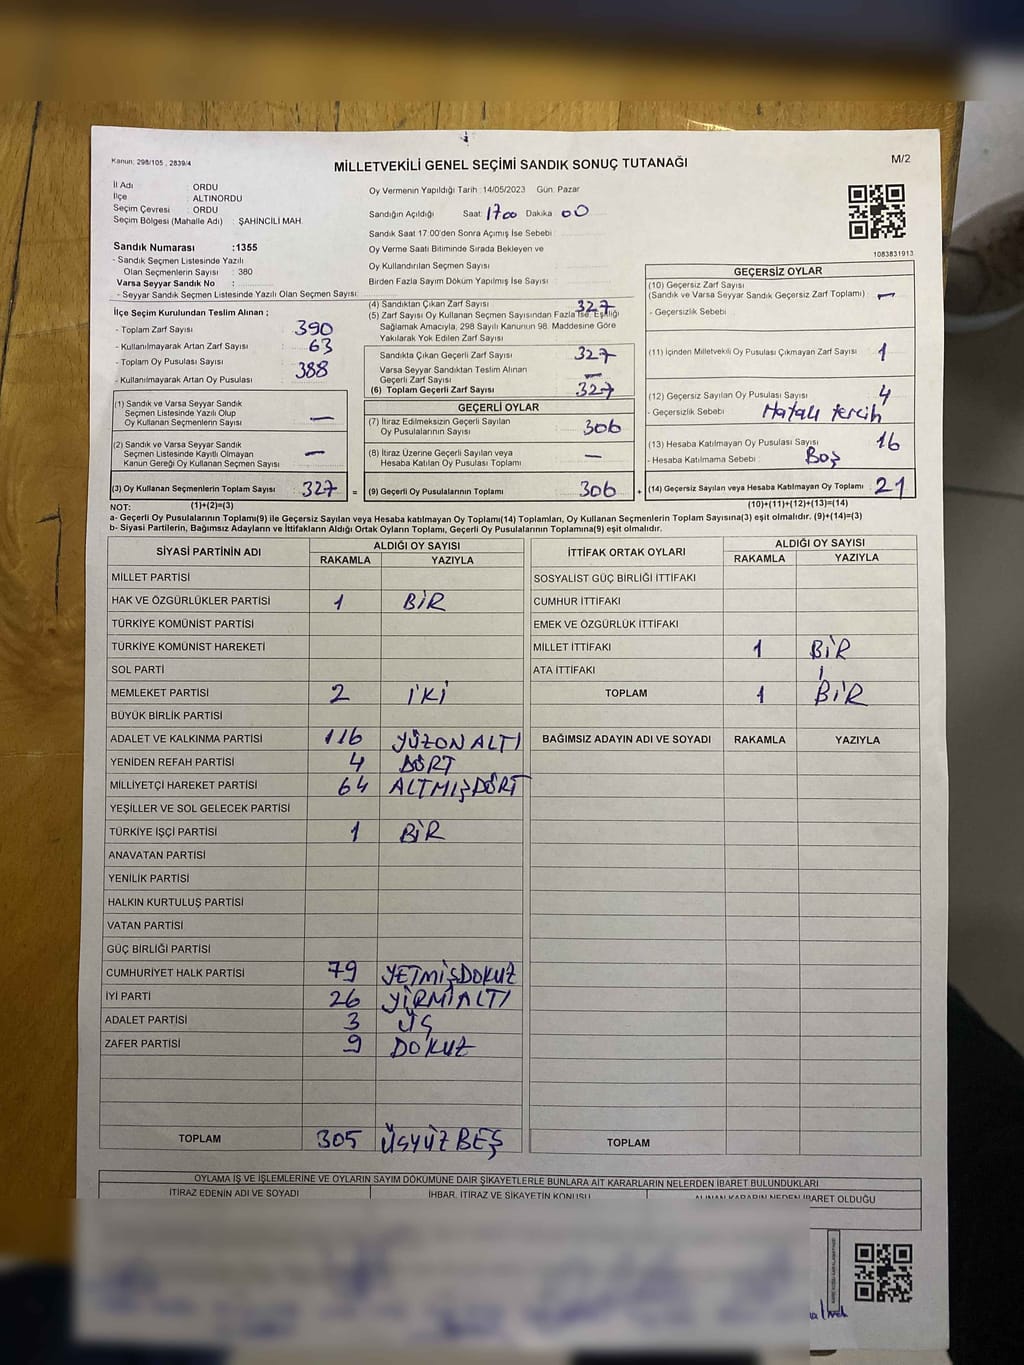 Kanun: 298/105 , 2839/4
MİLLETVEKİLİ GENEL SEÇİMİ SANDIK SONUÇ TUTANAĞI
M/2
İl Adı : ORDU
İlçe : ALTINORDU
Seçim Çevresi : ORDU
Seçim Bölgesi (Mahalle Adı) : ŞAHİNCİLİ MAH.
Sandık Numarası :1355
- Sandık Seçmen Listesinde Yazılı
Olan Seçmenlerin Sayısı : 380
Varsa Seyyar Sandık No :
- Seyyar Sandık Seçmen Listesinde Yazılı Olan Seçmen Sayısı:
Oy Vermenin Yapıldığı Tarih :14/05/2023 Gün: Pazar
Sandığın Açıldığı Saat: 1700 Dakika : 00
Sandık Saat 17:00'den Sonra Açımış İse Sebebi :
Oy Verme Saati Bitiminde Sırada Bekleyen ve
Oy Kullandırılan Seçmen Sayısı :
Birden Fazla Sayım Döküm Yapılmış İse Sayısı :
1083831913
İlçe Seçim Kurulundan Teslim Alınan ;
- Toplam Zarf Sayısı : 390
- Kullanılmayarak Artan Zarf Sayısı : 63
- Toplam Oy Pusulası Sayısı : 388
- Kullanılmayarak Artan Oy Pusulası :
(1) Sandık ve Varsa Seyyar Sandık
Seçmen Listesinde Yazılı Olup
Oy Kullanan Seçmenlerin Sayısı —
(2) Sandık ve Varsa Seyyar Sandık
Seçmen Listesinde Kayıtlı Olmayan
Kanun Gereği Oy Kullanan Seçmen Sayısı —
(3) Oy Kullanan Seçmenlerin Toplam Sayısı 327 =
(4) Sandıktan Çıkan Zarf Sayısı 327
(5) Zarf Sayısı Oy Kullanan Seçmen Sayısından Fazla İse, Eşitliği
Sağlamak Amacıyla, 298 Sayılı Kanunun 98. Maddesine Göre
Yakılarak Yok Edilen Zarf Sayısı :
Sandıkta Çıkan Geçerli Zarf Sayısı 327
Varsa Seyyar Sandıktan Teslim Alınan
Geçerli Zarf Sayısı —
(6) Toplam Geçerli Zarf Sayısı 327
GEÇERLİ OYLAR
(7) İtiraz Edilmeksizin Geçerli Sayılan
Oy Pusulalarının Sayısı 306
(8) İtiraz Üzerine Geçerli Sayılan veya
Hesaba Katılan Oy Pusulası Toplamı —
(9) Geçerli Oy Pusulalarının Toplamı 306 +
GEÇERSİZ OYLAR
(10) Geçersiz Zarf Sayısı
(Sandık ve Varsa Seyyar Sandık Geçersiz Zarf Toplamı) —
- Geçersizlik Sebebi
(11) İçinden Milletvekili Oy Pusulası Çıkmayan Zarf Sayısı 1
(12) Geçersiz Sayılan Oy Pusulası Sayısı 4
- Geçersizlik Sebebi : Hatalı tercih
(13) Hesaba Katılmayan Oy Pusulası Sayısı 16
- Hesaba Katılmama Sebebi : Boş
(14) Geçersiz Sayılan veya Hesaba Katılmayan Oy Toplamı 21
NOT: (1)+(2)=(3) (10)+(11)+(12)+(13)=(14)
a- Geçerli Oy Pusulalarının Toplamı(9) ile Geçersiz Sayılan veya Hesaba katılmayan Oy Toplamı(14) Toplamları, Oy Kullanan Seçmenlerin Toplam Sayısına(3) eşit olmalıdır. (9)+(14)=(3)
b- Siyasi Partilerin, Bağımsız Adayların ve İttifakların Aldığı Ortak Oyların Toplamı, Geçerli Oy Pusulalarının Toplamına(9) eşit olmalıdır.
SİYASİ PARTİNİN ADI ALDIĞI OY SAYISI
RAKAMLA YAZIYLA
MİLLET PARTİSİ
HAK VE ÖZGÜRLÜKLER PARTİSİ 1 BİR
TÜRKİYE KOMÜNİST PARTİSİ
TÜRKİYE KOMÜNİST HAREKETİ
SOL PARTİ
MEMLEKET PARTİSİ 2 İKİ
BÜYÜK BİRLİK PARTİSİ
ADALET VE KALKINMA PARTİSİ 116 YÜZONALTI
YENİDEN REFAH PARTİSİ 4 DÖRT
MİLLİYETÇİ HAREKET PARTİSİ 64 ALTMIŞDÖRT
YEŞİLLER VE SOL GELECEK PARTİSİ
TÜRKİYE İŞÇİ PARTİSİ 1 BİR
ANAVATAN PARTİSİ
YENİLİK PARTİSİ
HALKIN KURTULUŞ PARTİSİ
VATAN PARTİSİ
GÜÇ BİRLİĞİ PARTİSİ
CUMHURİYET HALK PARTİSİ 79 YETMİŞDOKUZ
İYİ PARTİ 26 YİRMİALTI
ADALET PARTİSİ 3 ÜÇ
ZAFER PARTİSİ 9 DOKUZ
TOPLAM 305 ÜÇYÜZBEŞ
İTTİFAK ORTAK OYLARI ALDIĞI OY SAYISI
RAKAMLA YAZIYLA
SOSYALİST GÜÇ BİRLİĞİ İTTİFAKI
CUMHUR İTTİFAKI
EMEK VE ÖZGÜRLÜK İTTİFAKI
MİLLET İTTİFAKI 1 BİR
ATA İTTİFAKI
TOPLAM 1 BİR
BAĞIMSIZ ADAYIN ADI VE SOYADI RAKAMLA YAZIYLA
TOPLAM
OYLAMA İŞ VE İŞLEMLERİNE VE OYLARIN SAYIM DÖKÜMÜNE DAİR ŞİKAYETLERLE BUNLARA AİT KARARLARIN NELERDEN İBARET BULUNDUKLARI
İTİRAZ EDENİN ADI VE SOYADI
İHBAR, İTİRAZ VE ŞİKAYETİN KONUSU
ALINAN KARARIN NEDEN İBARET OLDUĞU